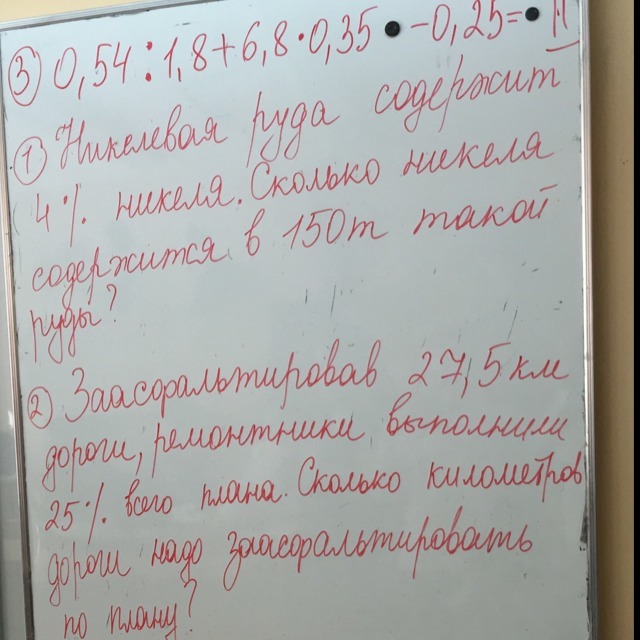 ③ 0,54:1,8+6,8·0,35-0,25=
① Никелевая руда содержит
4% никеля. Сколько никеля
содержится в 150т такой
руды?
② Заасфальтировав 27,5 км
дороги, ремонтники выполнили
25% всего плана. Сколько километров
дороги надо заасфальтировать
по плану?